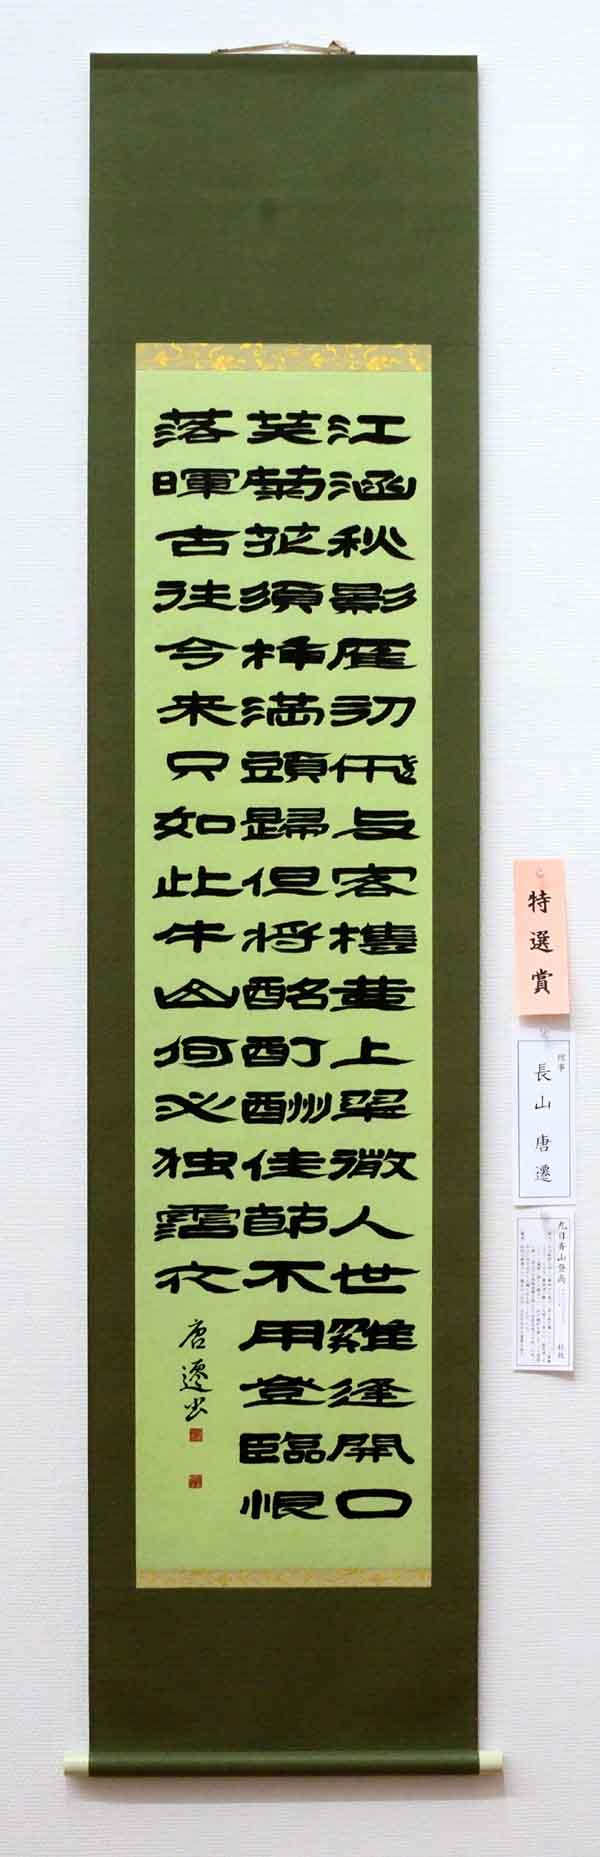 江涵秋影雁初飛与客攜壺上翠微人世難逢開口
笑菊花須挿満頭歸但将酩酊酬佳節不用登臨恨
落暉古往今来只如此牛山何必独霑衣
唐遷書
特選賞
長山唐遷
九日斉山登高 杜牧